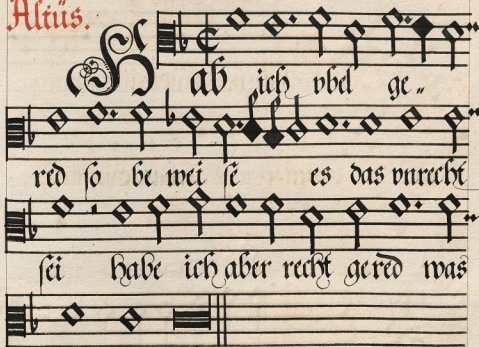 Altüs.
Hab ich vbel ge„
red so be wei se es das vnrecht
sei habe ich aber recht gered was